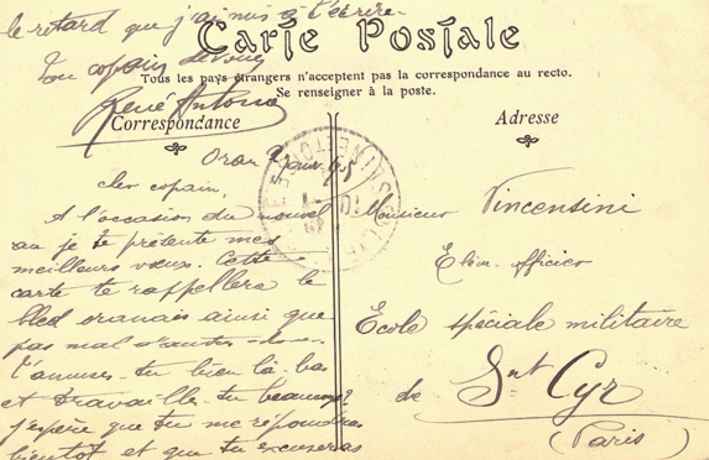 le retard que j'ai mis à t'écrire.
Ton copain dévoué
René Antoine
Carte Postale
Tous les pays étrangers n'acceptent pas la correspondance au recto.
Se renseigner à la poste.
Correspondance
Oran 2 janv.
cher copain,
A l'occasion du nouvel
an je te présente mes
meilleurs vœux. Cette
carte te rappellera le
bled oranais ainsi que
pas mal d'autres
t'amuses-tu bien là-bas
et travailles-tu beaucoup?
j'espère que tu me répondras
bientôt et que tu excuseras
Adresse
Monsieur Vincensini
Elève officier
Ecole spéciale militaire
de Snt Cyr
(Paris)